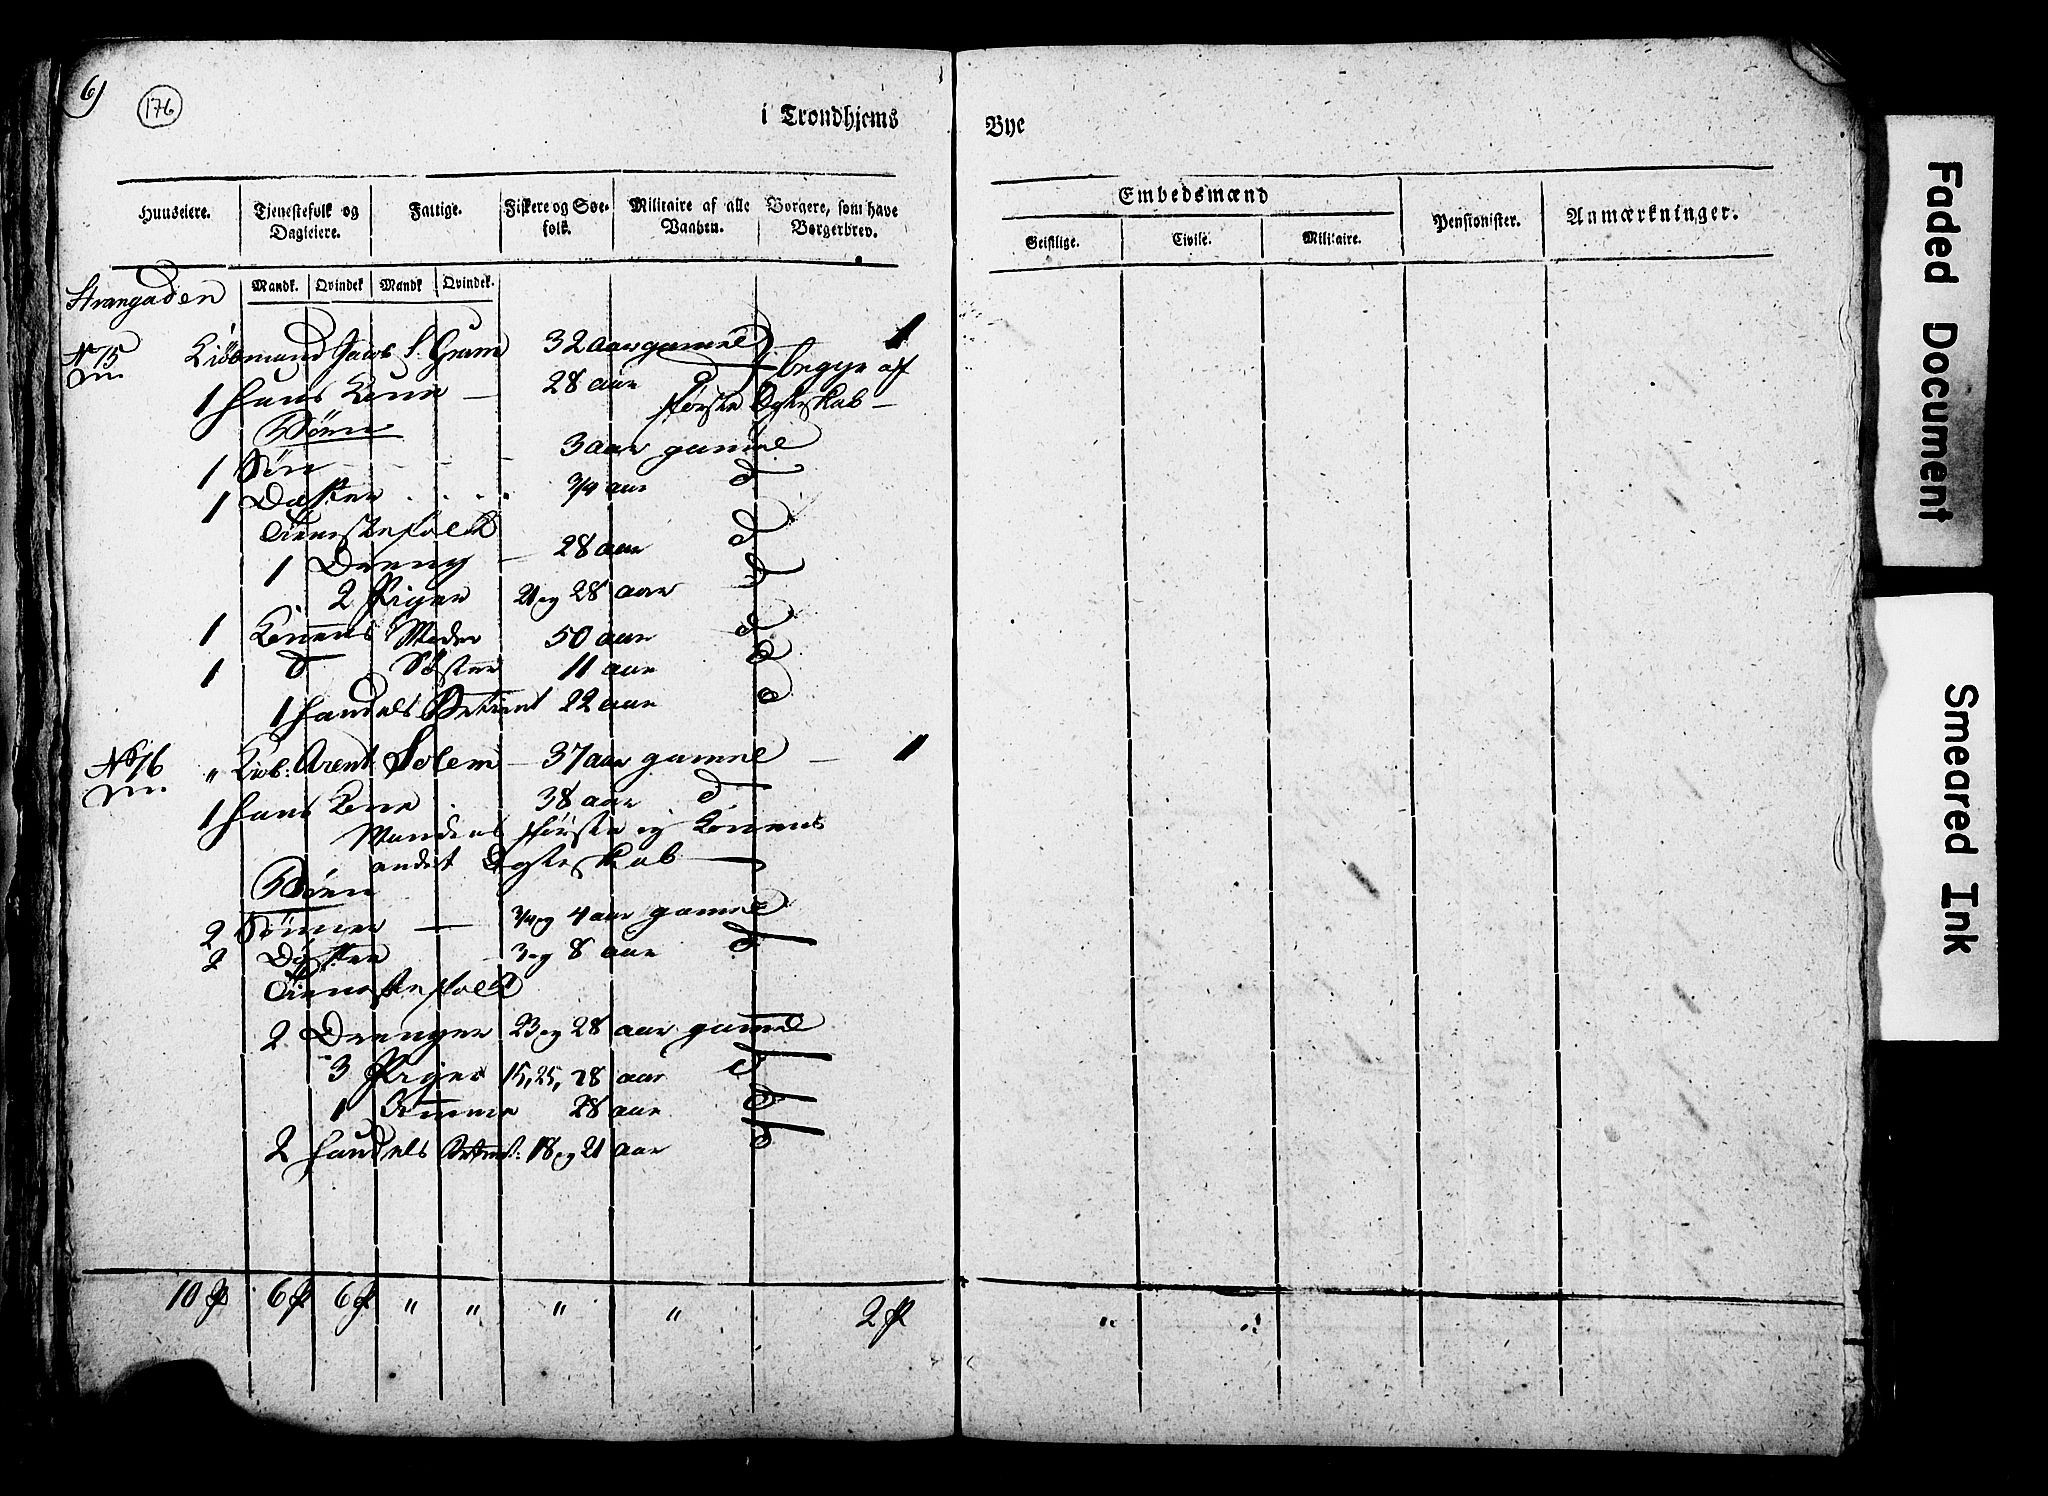 6)
176
i Trondhjems Bye
Huuseiere.
Tjenestefolk og Dagleiere.
Fattige.
Fiskere og Søe-folk.
Militaire af alle Vaaben.
Borgere, som have Borgerbrev.
Embedsmænd
Geistlige.
Civile.
Militaire.
Pensionister.
Anmærkninger.
Mandk. Qvindek Mandk Qvindek.
Strangaden
No 75 Kiøbmand Jacob S. Gram 32 aar gamel 1
1 Hans Kone — 28 aar d begge af
første Egteskab —
Børn
1 Søn - - - 3 aar gamel
1 Datter . . . . 3/4 aar d
Tienestefolck
1 Dreng — 28 aar d
2 Piger 21 og 28 aar d
1 Konens Moder 50 aar d
1 d Søster 11 aar d
1 Handels Betient 22 aar d
No 76 " Kiøb: Arent Solem — 37 aar gamel — 1
1 Hans Kone . 38 aar d
Mandens første og Konens
andet Egteskab —
Børn
2 Sønner — 3/4 og 4 aar gamel
2 Døttre 3 og 8 aar d
Tienestefolck
2 Drenger 23 og 28 aar gamel
3 Piger 15, 25, 28 aar d
1 Amme 28 aar d
2 Handels Betient: 18 og 21 aar d
10 P 6 P 6 P " " " " 2 P " "
Faded Document
Smeared Ink